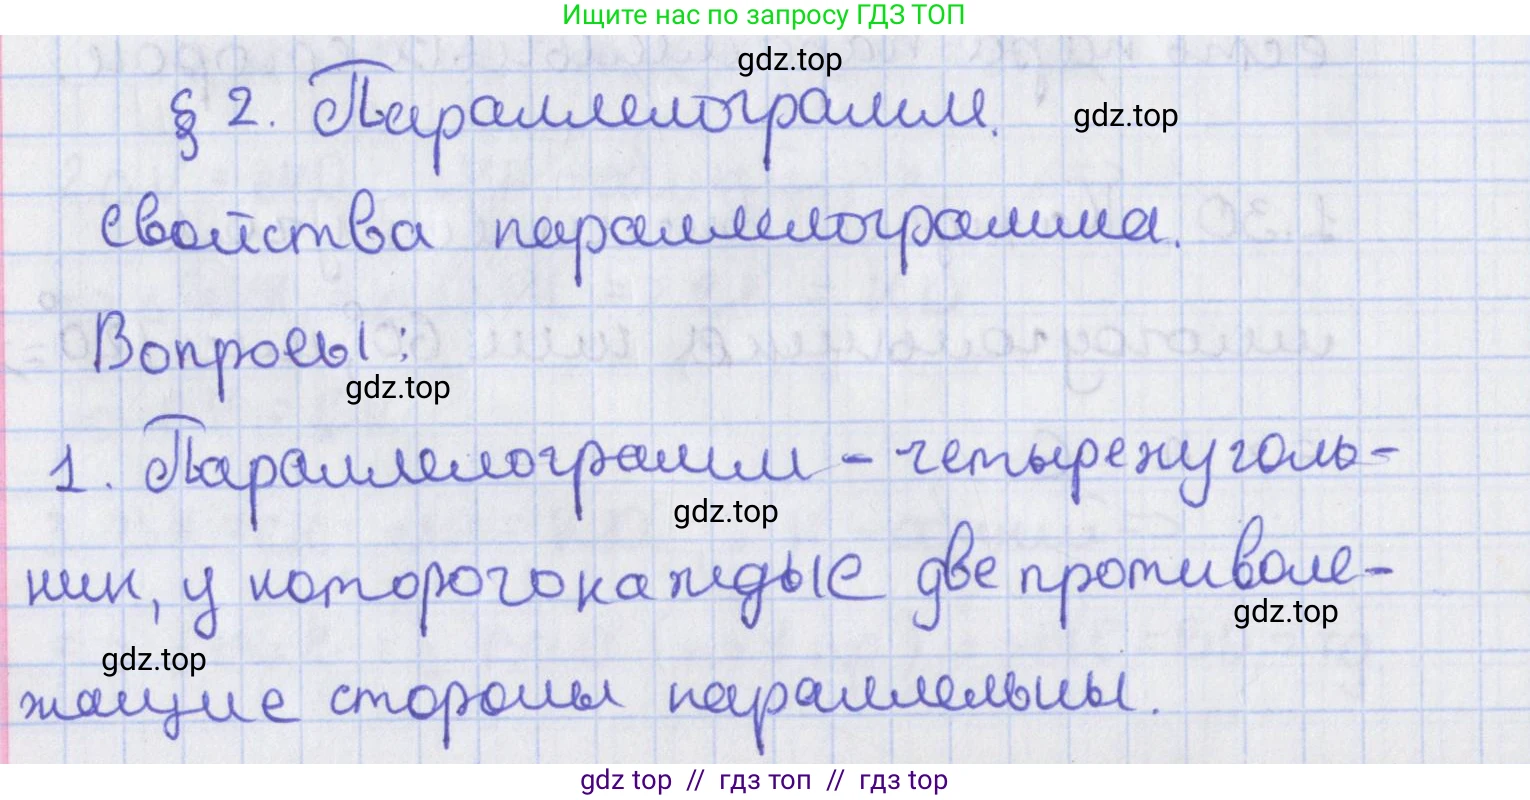 Ищите нас по запросу ГДЗ ТОП
gdz.top
§ 2. Параллелограмм.
gdz.top
Свойства параллелограмма.
Вопросы:
gdz.top
1. Параллелограмм - четырехуголь-
gdz.top
ник, у которого каждые две противоле-
gdz.top
gdz.top
жащие стороны параллельны.
gdz top // гдз топ // гдз top